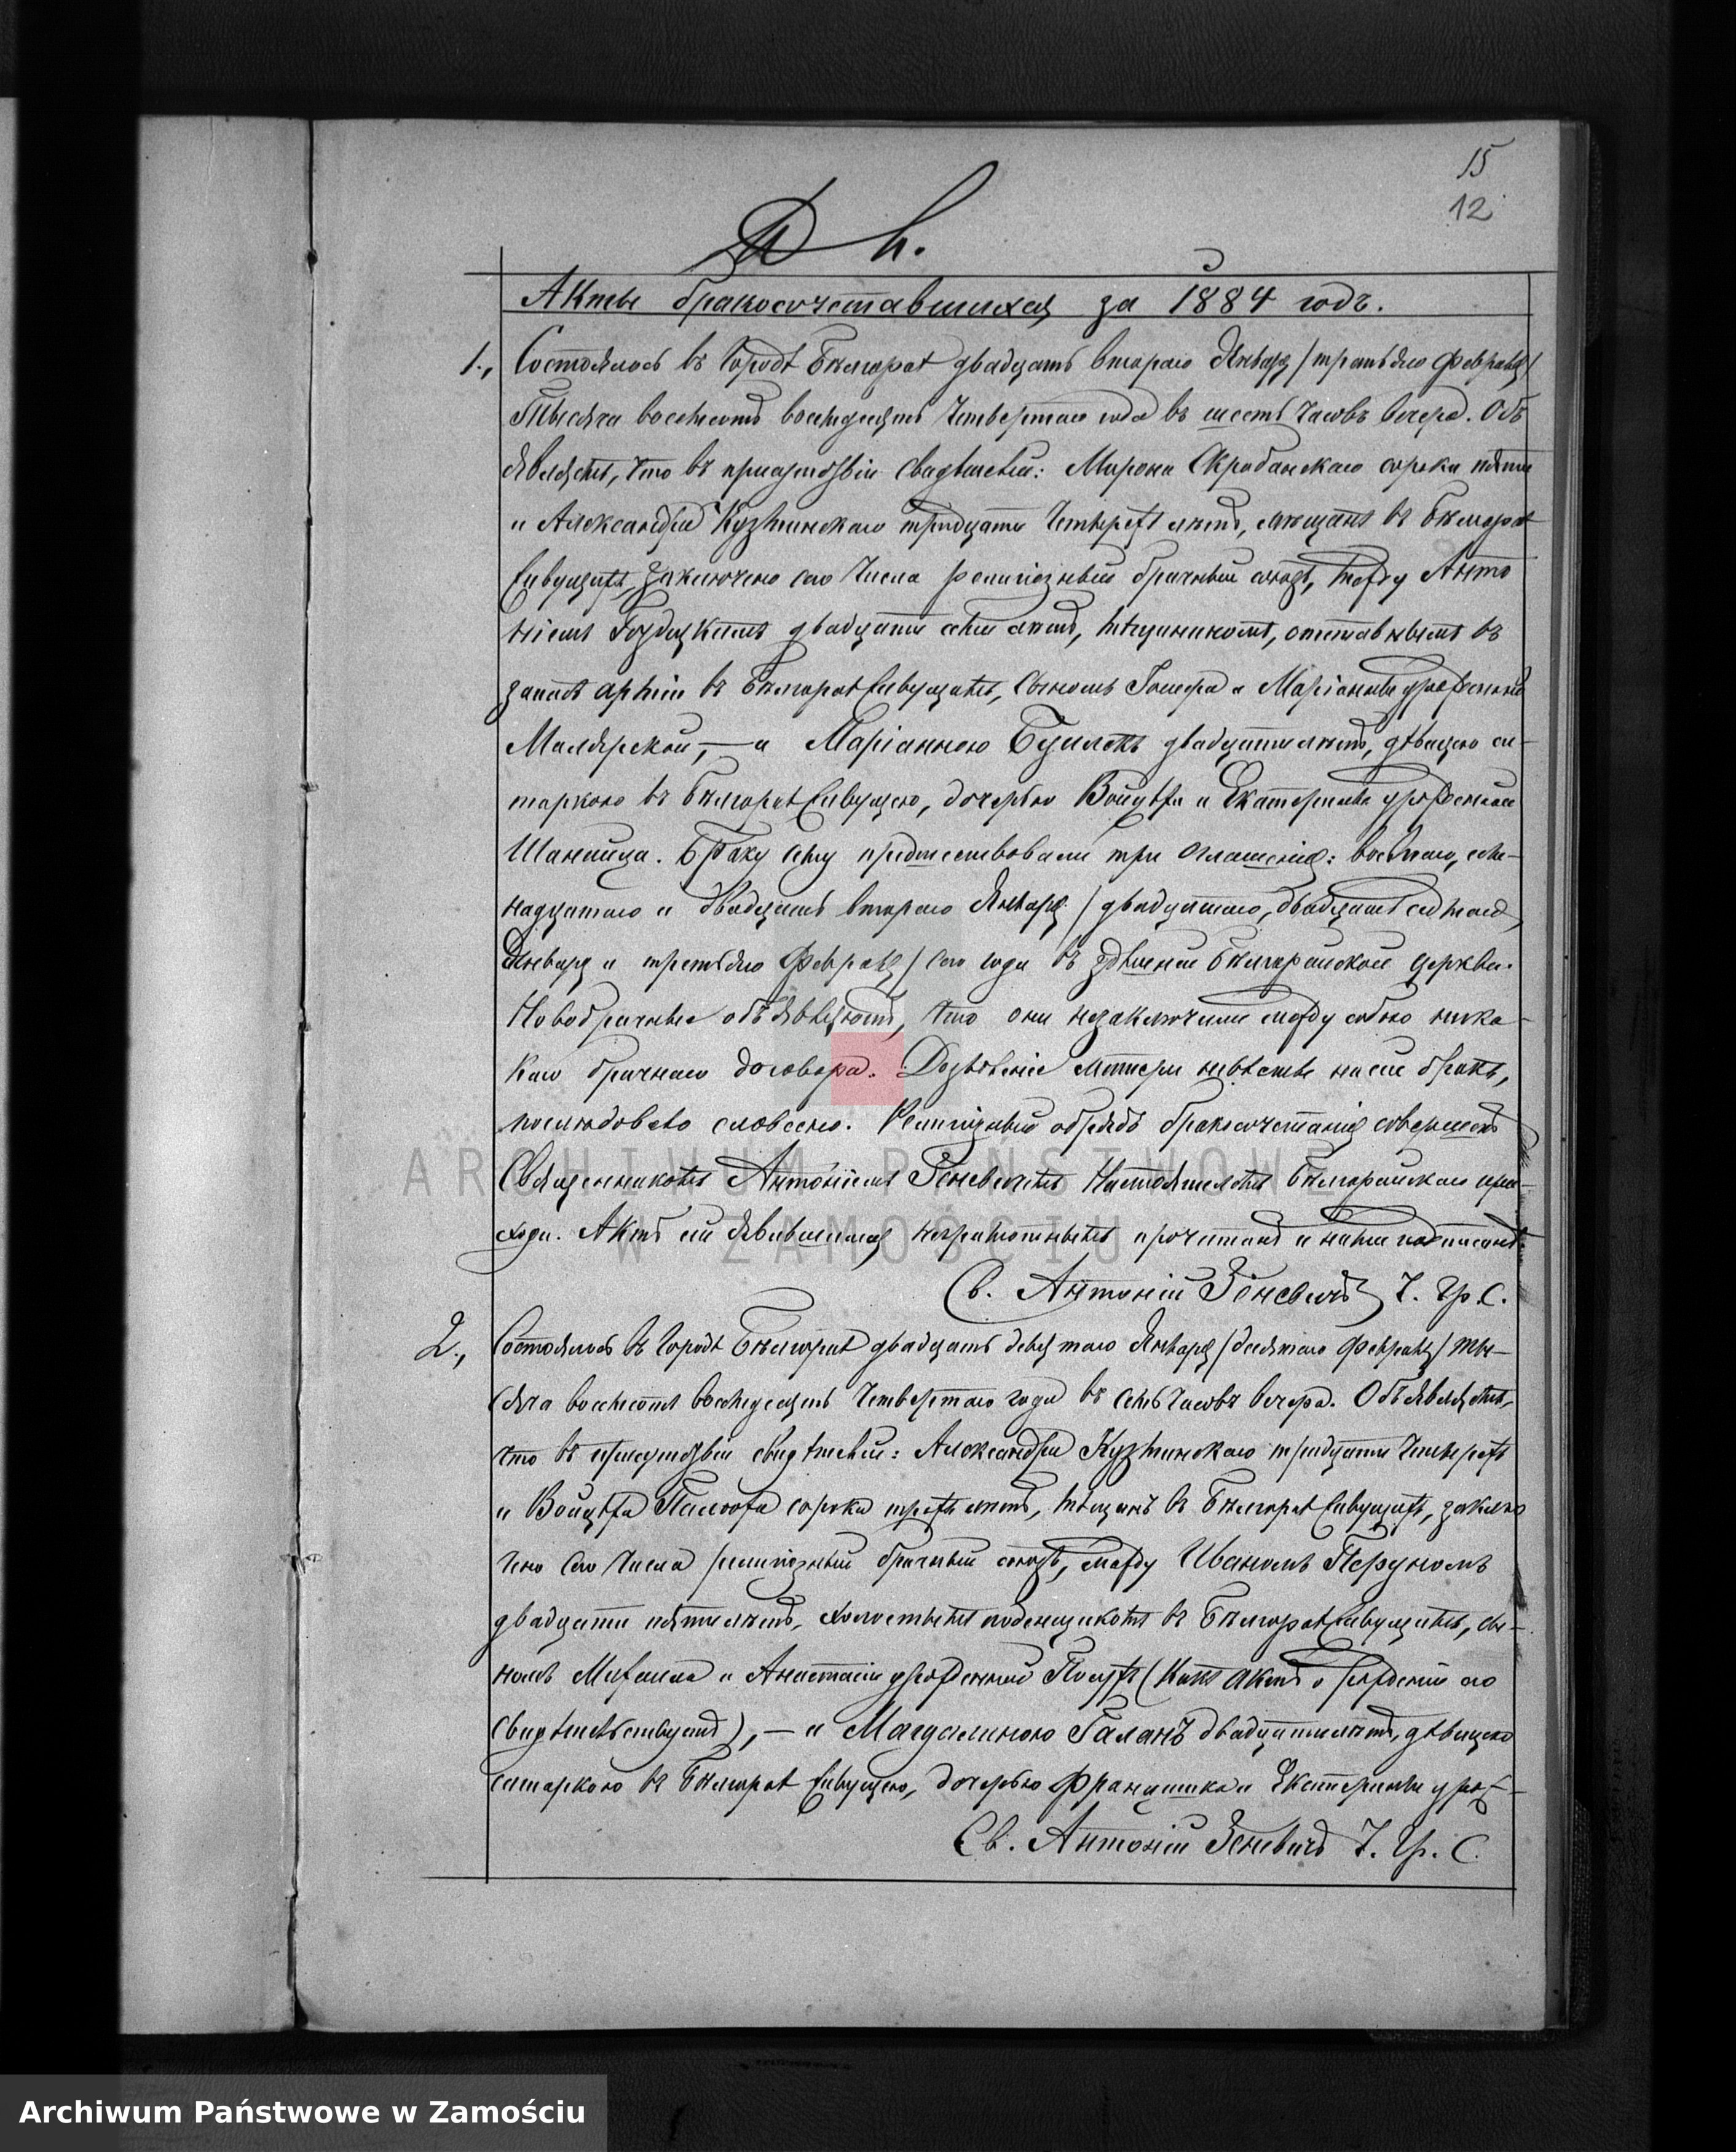 15
12
Акты бракосочетавшихся за 1884 годъ.
1., Состоялось въ городѣ Бѣлгораѣ двадцать втораго Января / третьяго Февраля /
Тысяча восемьсотъ восемдесятъ четвертаго года въ шесть часовъ вечера. Объ
являемъ, что въ присутствіи свидѣтелей: Мирона Скробанскаго сорока пяти
и Александра Кузминскаго тридцати четырехъ лѣтъ, мѣщанъ въ Бѣлгораѣ
живущихъ, заключено сего числа религіозный брачный союзъ, между Анто
ніемъ двадцати семи лѣтъ, мѣщаниномъ, отставнымъ въ
запасъ арміи въ Бѣлгораѣ живущимъ, сыномъ Іосифа и Маріанны урожденной
Малярской, — и Маріанною двадцати лѣтъ, дѣвицею си-
таркою въ Бѣлгораѣ живущею, дочерью Войцѣха и Екатерины урожденной
Шаница. Браку сему предшествовали три оглашенія: восьмаго, пят-
надцатаго и двадцать втораго Января / двадцатаго, двадцать седьмаго
Января и третьяго Февраля / сего года въ здѣшней Бѣлгорайской церкви.
Новобрачные объявляютъ, что они незаключили между собою ника-
каго брачнаго договора. Дозволеніе матери невѣсты на сей бракъ,
послѣдовало словесно. Религіозный обрядъ бракосочетанія совершенъ
Священникомъ Антоніемъ Зеневичемъ Настоятелемъ Бѣлгорайскаго при-
хода. Актъ сей явившимся неграмотнымъ прочитанъ и нами подписанъ.
Св. Антоній Зеневичъ Ч. Гр. С.
2., Состоялось въ городѣ Бѣлгораѣ двадцать девятаго Января / десятаго Февраля / ты-
сяча восемьсотъ восемдесятъ четвертаго года въ семь часовъ вечера. Объявляемъ,
что въ присутствіи свидѣтелей: Александра Кузминскаго тридцати четырехъ
и Войцѣха сорока трехъ лѣтъ, мѣщанъ въ Бѣлгораѣ живущихъ, заклю
чено сего числа религіозный брачный союзъ, между Иваномъ Перуномъ
двадцати пяти лѣтъ, холостымъ поденщикомъ въ Бѣлгораѣ живущимъ, сы-
номъ Михаила и Анастасіи урожденной (какъ актъ о рожденіи его
свидѣтельствуетъ), — и Магдалиною Галанъ двадцати лѣтъ, дѣвицею
ситаркою въ Бѣлгораѣ живущею, дочерью Францишка и Екатерины урож-
Св. Антоній Зеневичъ Ч. Гр. С.
ARCHIWUM PAŃSTWOWE
W ZAMOŚCIU
Archiwum Państwowe w Zamościu